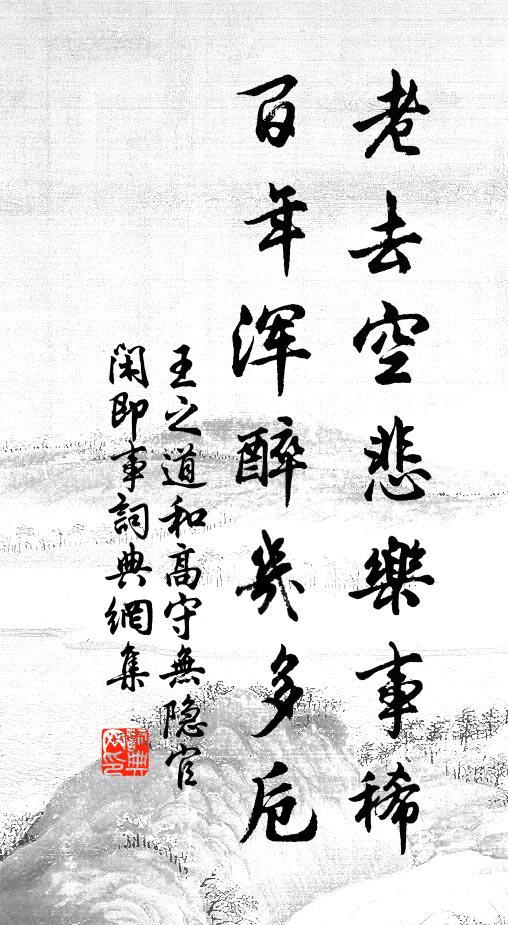 老去空悲樂事稀
百年浑醉幾多卮
王之道和高守無隐官
闲即事詞典網集